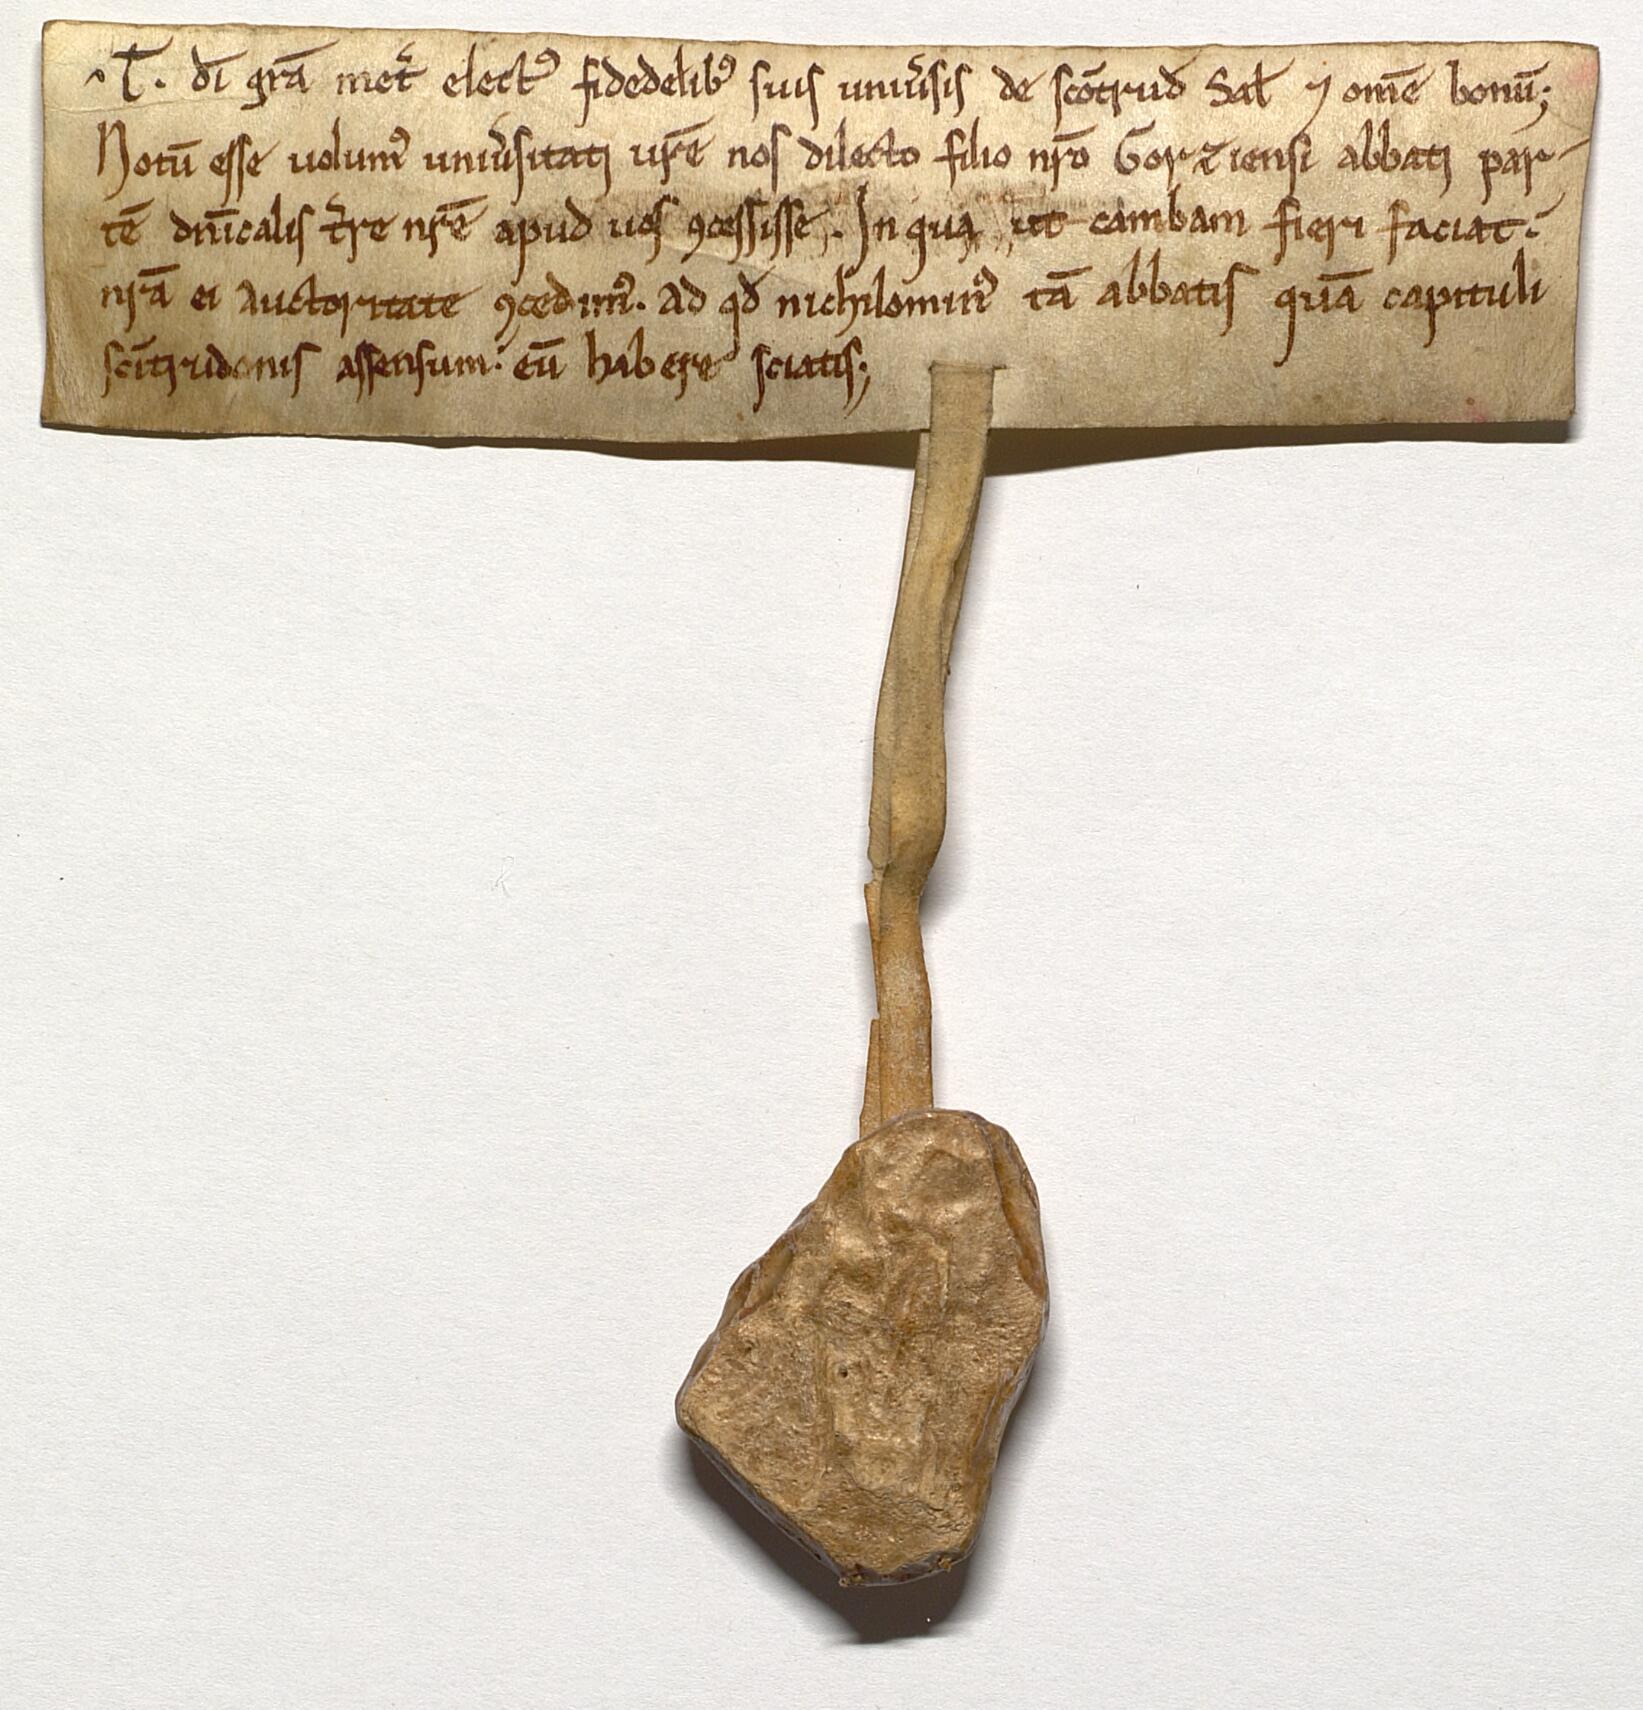 .T̄. dī grā met̄ electꝰ fidedelibꝰ suis uniu̓sis de scōtrud Sal̄ ⁊ om̄e bonū;
Notū esse uolumꝰ uniu̓sitati ur̄e nos dilecto filio nr̄o Gorziensi abbati par-
tē dn̄icalis t̓re nr̄e apud uos ꝯcessisse. In qua ut cambam fieri faciat.
nr̄a ei auctoritate ꝯcedimꝰ. ad qd̄ nichilominꝰ tā abbatis quā capituli
scītrudonis assensum. eū habere sciatis;